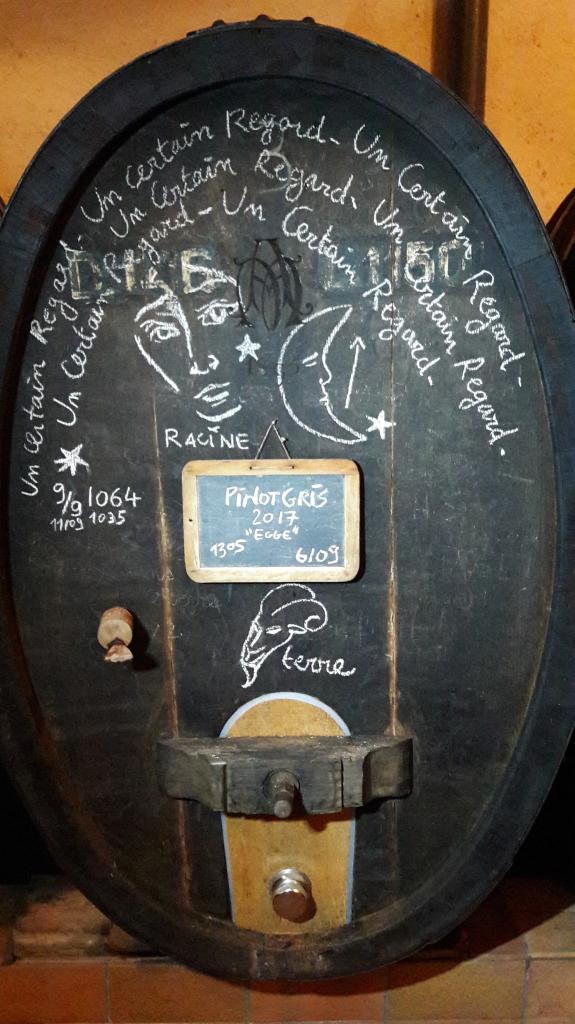 Un Certain Regard - Un Certain Regard - Un Certain Regard -
Un Certain Regard - Un Certain Regard - Un Certain Regard -
Un Certain Regard -
150
RACINE
9/9 1064
11/09 1035
PINOT GRIS
2017
"EGGE"
1305
6/09
terre